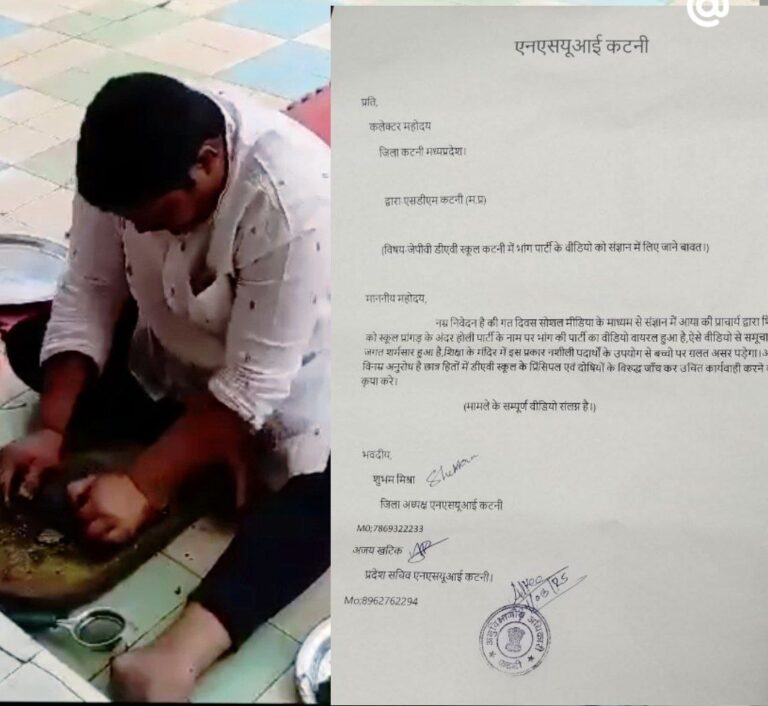 @
एनएसयूआई कटनी
प्रति,
कलेक्टर महोदय
जिला कटनी मध्यप्रदेश।
द्वारा-एसडीएम कटनी (म.प्र)
(विषय-जेपीवी डीएवी स्कूल कटनी में भांग पार्टी के वीडियो को संज्ञान में लिए जाने बावत।)
माननीय महोदय,
नम्र निवेदन है की गत दिवस सोशल मीडिया के माध्यम से संज्ञान में आया की प्राचार्य द्वारा
को स्कूल प्रांगड़ के अंदर होली पार्टी के नाम पर भांग की पार्टी का वीडियो वायरल हुआ है,ऐसे वीडियो से समूचा
जगत शर्मसार हुआ है,शिक्षा के मंदिर में इस प्रकार नशीली पदार्थो के उपयोग से बच्चो पर गलत असर पड़ेगा।
विनम्र अनुरोध है छात्र हितों में डीएवी स्कूल के प्रिंसिपल एवं दोषियों के विरुद्ध जाँच कर उचित कार्यवाही करने
कृपा करे।
(मामले के सम्पूर्ण वीडियो संलग्न है।)
भवदीय,
शुभम मिश्रा
जिला अध्यक्ष एनएसयूआई कटनी
Mo;7869322233
अजय खटिक
प्रदेश सचिव एनएसयूआई कटनी।
Mo;8962762294
अनुविभागीय अधिकारी
कटनी